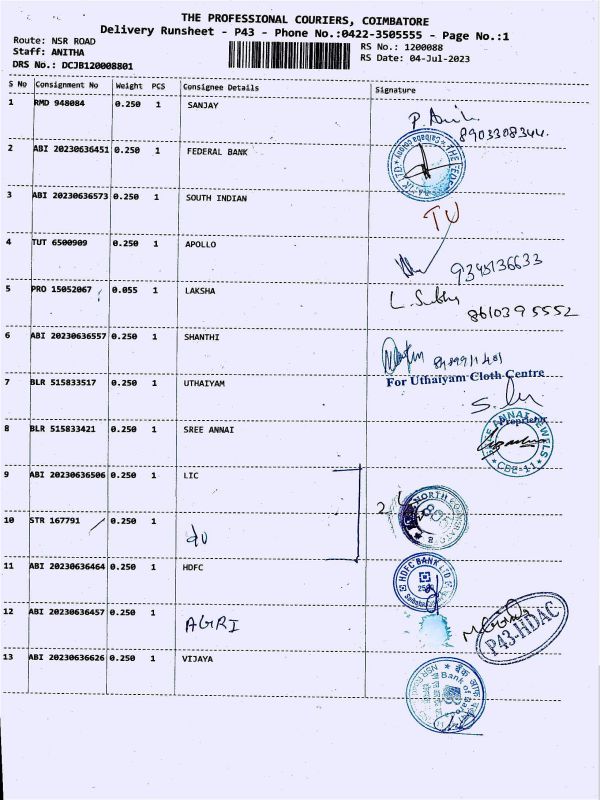 THE PROFESSIONAL COURIERS, COIMBATORE
Delivery Runsheet - P43 - Phone No.:0422-3505555 - Page No.:1
Route: NSR ROAD
Staff: ANITHA
DRS No.: DCJB120008801
RS No.: 1200088
RS Date: 04-Jul-2023
S No Consignment No Weight PCS Consignee Details Signature
1 RMD 948084 0.250 1 SANJAY
8903308344.
2 ABI 20230636451 0.250 1 FEDERAL BANK
3 ABI 20230636573 0.250 1 SOUTH INDIAN
TU
4 TUT 6500909 0.250 1 APOLLO
9345136633
5 PRO 15052067 0.055 1 LAKSHA
8610395552
6 ABI 20230636557 0.250 1 SHANTHI
For Uthaiyam Cloth Centre
7 BLR 515833517 0.250 1 UTHAIYAM
Proprietor
8 BLR 515833421 0.250 1 SREE ANNAI
SREE ANNAI JEWELS
CBE-11
9 ABI 20230636506 0.250 1 LIC
10 STR 167791 0.250 1
11 ABI 20230636464 0.250 1 HDFC
HDFC BANK LTD
12 ABI 20230636457 0.250 1 AGRI
P43-HDAC
13 ABI 20230636626 0.250 1 VIJAYA
Bank of Baroda